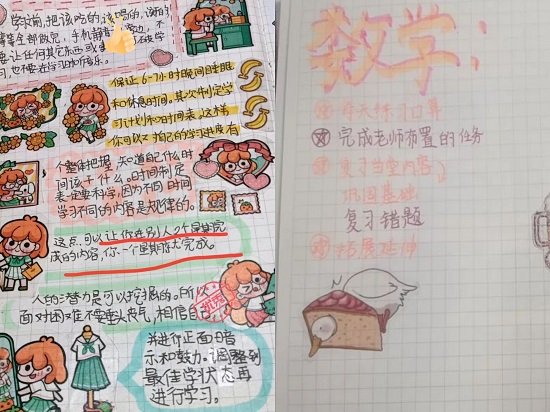 学校前,把该吃的,该喝的,
等全部做完,手机静音
要让任何其它东西或
习,也不要在学习中听音乐。
保证6-7小时晚间睡眠
和休息时间。其次制定学
习计划和时间表,这样
你可以对自己的学习进度有
个整体把握,知道自己什么时
间该干什么。时间制定
表一定要科学,因为不同时间
学习不同的内容是规律的。
这点,可以让你在别人2个星期完
成的内容,你一个星期完成。
人的潜力是可以挖掘的。所以
面对困难不要垂头丧气,相信自
并进行正面暗
示和鼓力。调整到
最佳学状态再
进行学习。
数学:
每天练习口算
完成老师布置的任务
复习当堂内容
巩固基础
复习错题
拓展延伸